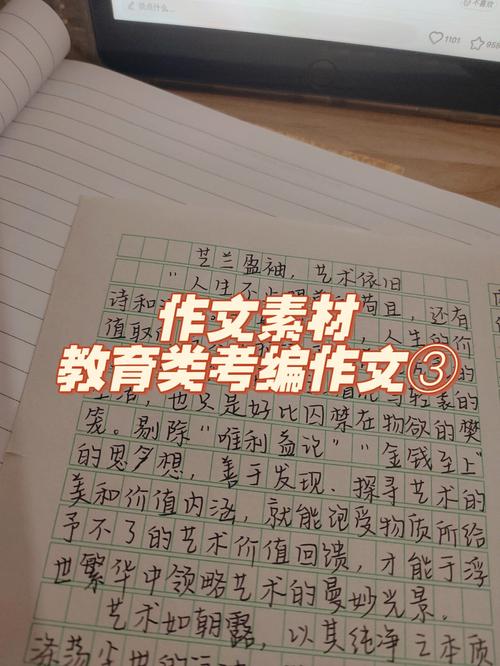 说点什么...
不喜欢
1101
958
芝兰盈袖，艺术依旧
"人生不止眼前的苟且，还有
诗和
值取 人生的价
作文素材
教育类考编作文③
也只是好比囚禁在物欲的樊
笼。剔除"唯利益论""金钱至上"
的思多想，善于发现、探寻艺术的
美和价值内涵，就能饱受物质所给
予不了的艺术价值回馈，才能于浮
世繁华中领略艺术的曼妙光景。
艺术如朝露，以其纯净之本质
涤荡尘世的